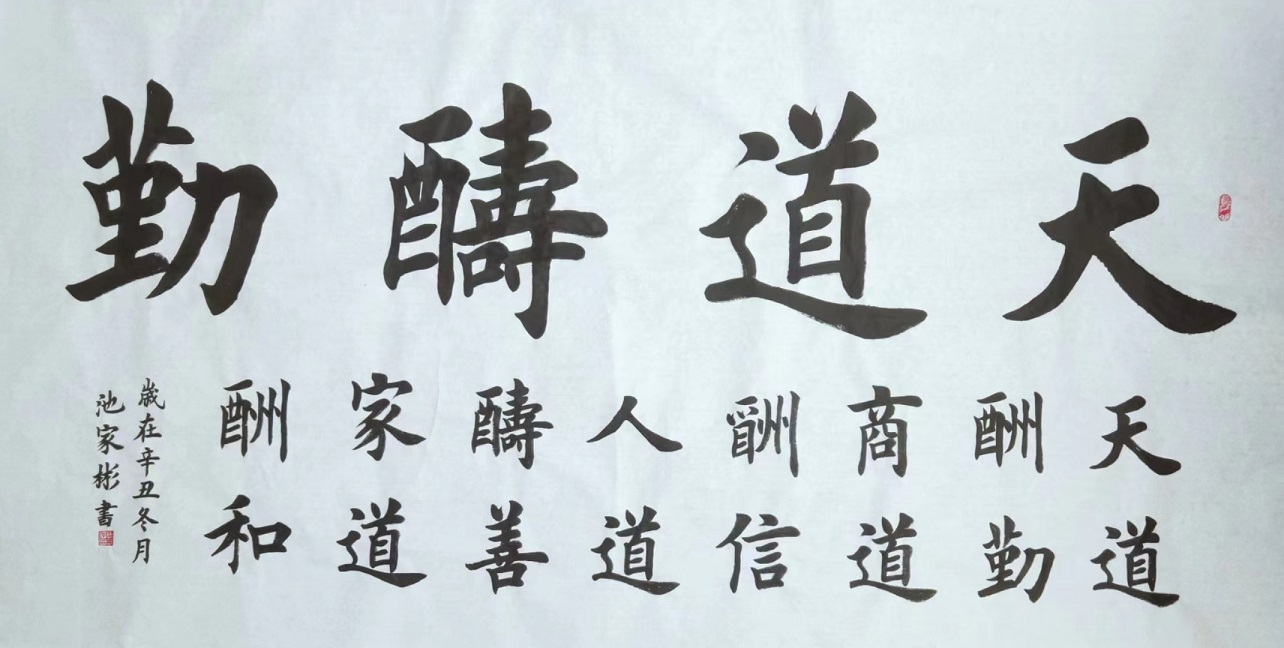 天道醻勤
天道
酬勤
商道
酬信
人道
醻善
家道
酬和
歲在辛丑冬月
池家彬書